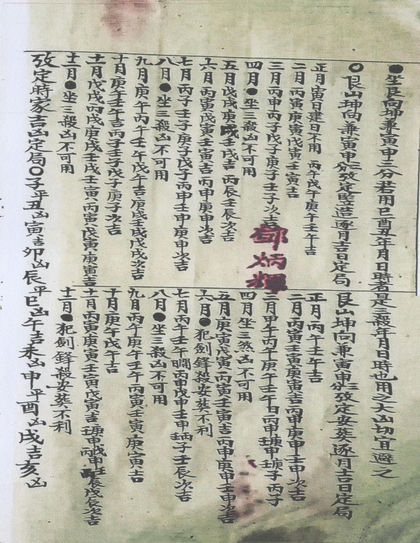 ●坐艮向坤兼寅申三分若用巳酉丑年月日時者是三殺年月日時也用之大凶切宜避之
○艮山坤向兼寅申分攷定竪造逐月吉日定局
正月寅日建日不用 丙午戊午庚午壬午吉
二月丙寅庚寅戊寅壬寅吉
三月丙申丙子壬子庚子戊子次吉
四月●坐三殺凶不可用
五月戊戌庚戌壬戌吉 丙辰壬辰次吉
六月丙寅戊寅壬寅吉丙申庚申次吉
七月丙子壬子庚子戊子丙申壬申庚申次吉
八月●坐三殺凶不可用
九月庚午丙午壬午戊午吉庚戌壬戌戊戌次吉
十月庚午壬午吉丙子壬子戊子庚子次吉
十一月戊戌丙戌庚戌壬戌壬寅丙寅戊寅庚寅吉
十二月●坐三殺凶不可用
鄧炳輝
艮山坤向兼寅申分攷定安葬逐月吉日定局
正月丙午壬午吉
二月丙寅壬寅庚寅吉丙申庚申壬申次吉
三月甲午丙午庚午壬午日丙申庚申壬申次丙子
四月坐三煞凶不可用
五月庚寅戊寅丙寅壬寅吉丙申庚申壬申次吉
六月●犯劍鋒殺安葬不利
七月丙午壬午丙申戊申壬申丙子壬子壬辰次吉
八月●坐三殺凶不可用
九月庚午丙午壬午丙寅壬寅庚寅吉
十月庚午戊午吉
十一月丙寅庚寅壬寅戊寅吉
十二月●犯劍鋒殺安葬不利
攷定時家吉凶定局○子平丑凶寅吉卯凶辰平巳凶午吉未凶申平酉凶戌吉亥凶